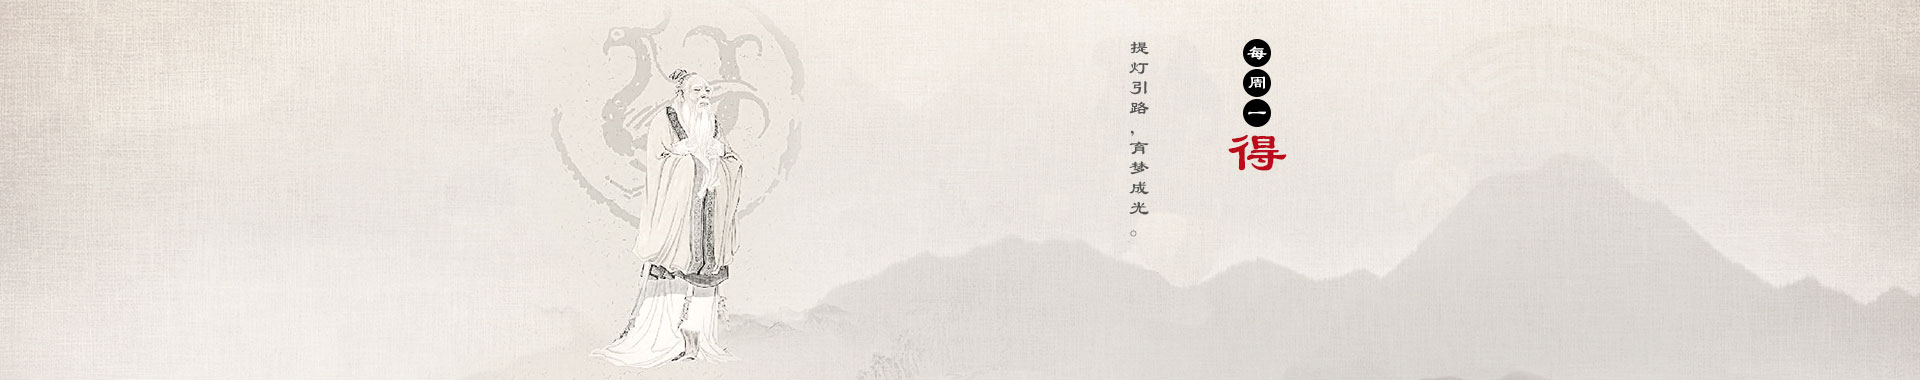 每周一得
提灯引路,育梦成光。